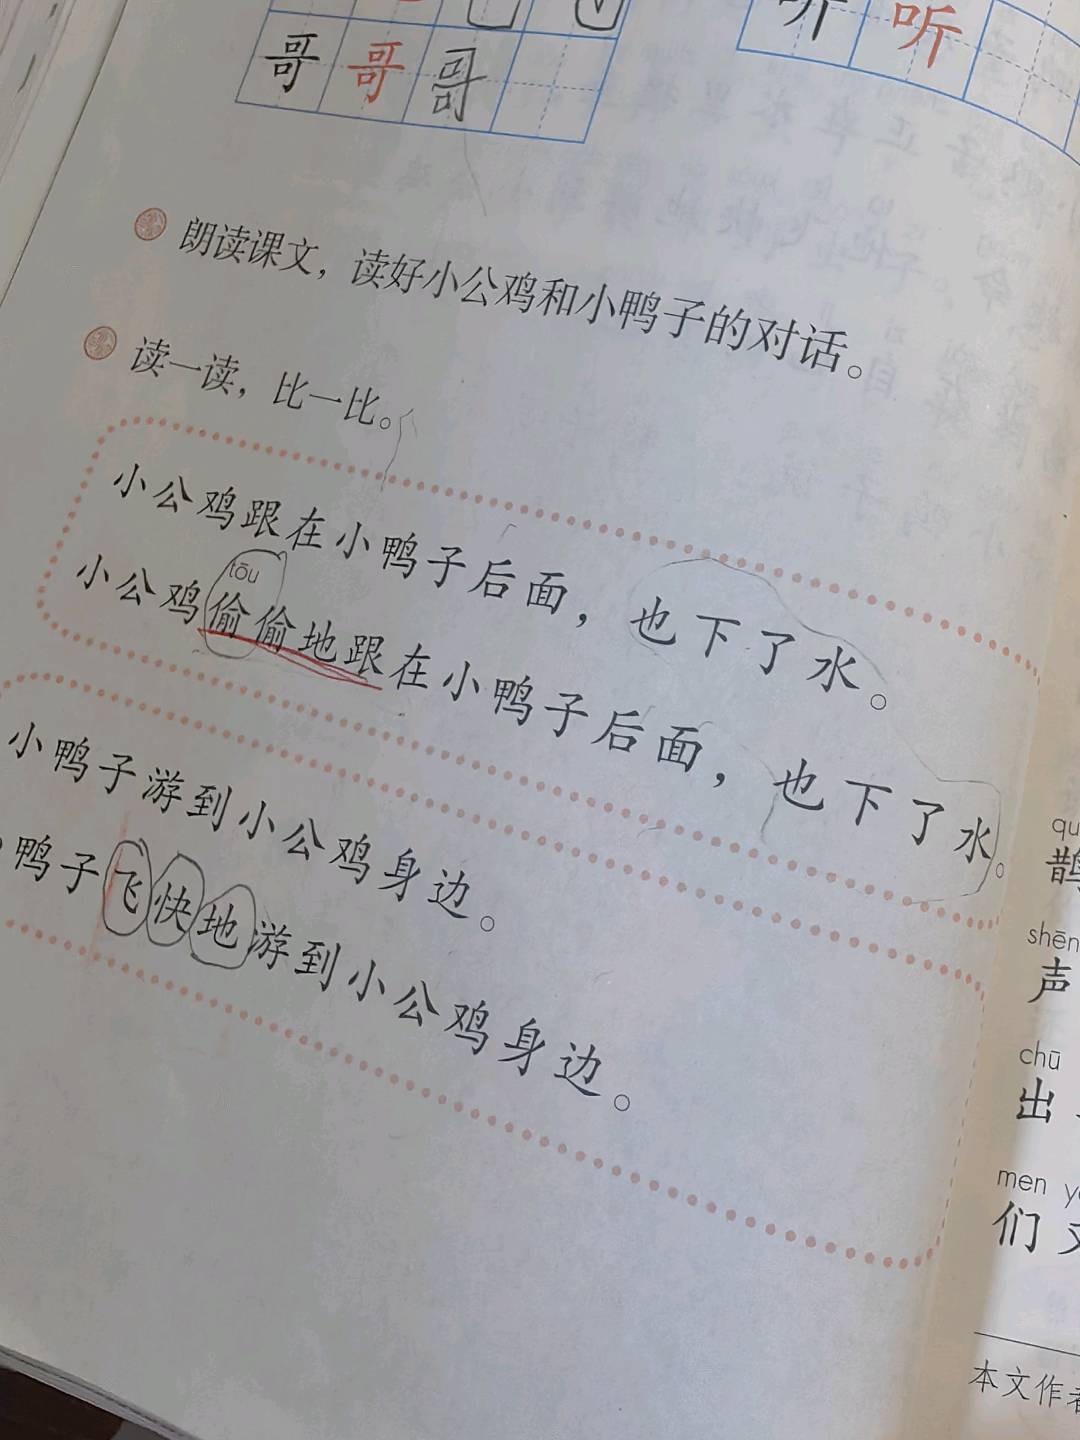 哥 哥 哥
听 听
朗读课文，读好小公鸡和小鸭子的对话。
读一读，比一比。
小公鸡跟在小鸭子后面，也下了水。
tōu
小公鸡偷偷地跟在小鸭子后面，也下了水。
小鸭子游到小公鸡身边。
鸭子飞快地游到小公鸡身边。
鹊
shēn
声
chū
出
men
们
本文作者